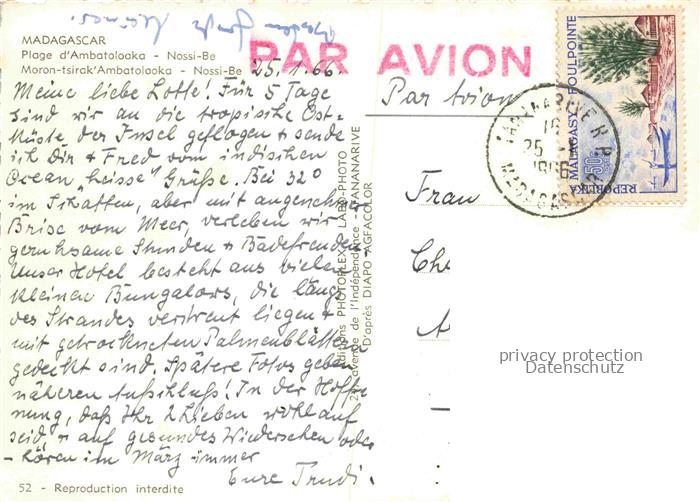 MADAGASCAR
Plage d'Ambatoloaka - Nossi-Be
Moron-tsirak'Ambatoloaka - Nossi-Be
PAR AVION
25.1.66.
Meine liebe Lotte! Für 5 Tage
sind wir an die tropische Ost-
küste der Insel geflogen + sende
ich Dir + Fred vom indischen
Ocean "heisse" Grüße. Bei 32°
im Schatten, aber mit angenehmer
Brise vom Meer, verleben wir
geruhsame Stunden + Badefreuden
Unser Hotel besteht aus vielen
kleinen Bungalows, die längs
des Strandes verstreut liegen +
mit getrockneten Palmenblättern
gedeckt sind. Spätere Fotos geben
näheren Aufschluß! In der Hoff-
nung, daß Ihr 2 Lieben wohlauf
seid, + auf gesundes Wiedersehen oder
- hören im März immer
Eure Trudi.
52 - Reproduction interdite
Editions PHOTOFLEX - LABO-PHOTO
avenue de l'Indépendance - TANANARIVE
D'après DIAPO "AGFACOLOR
Par avion
Frau
TANANARIVE R.P.
16
25
MADAGASCAR
REPOBLIKA MALAGASY
FOULPOINTE
50F
privacy protection
Datenschutz